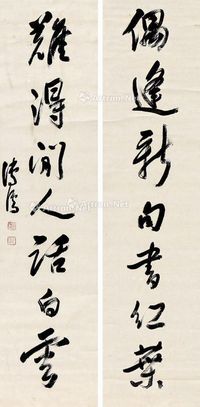 偶逢新句書紅葉
難得閒人話白雲
溥儒